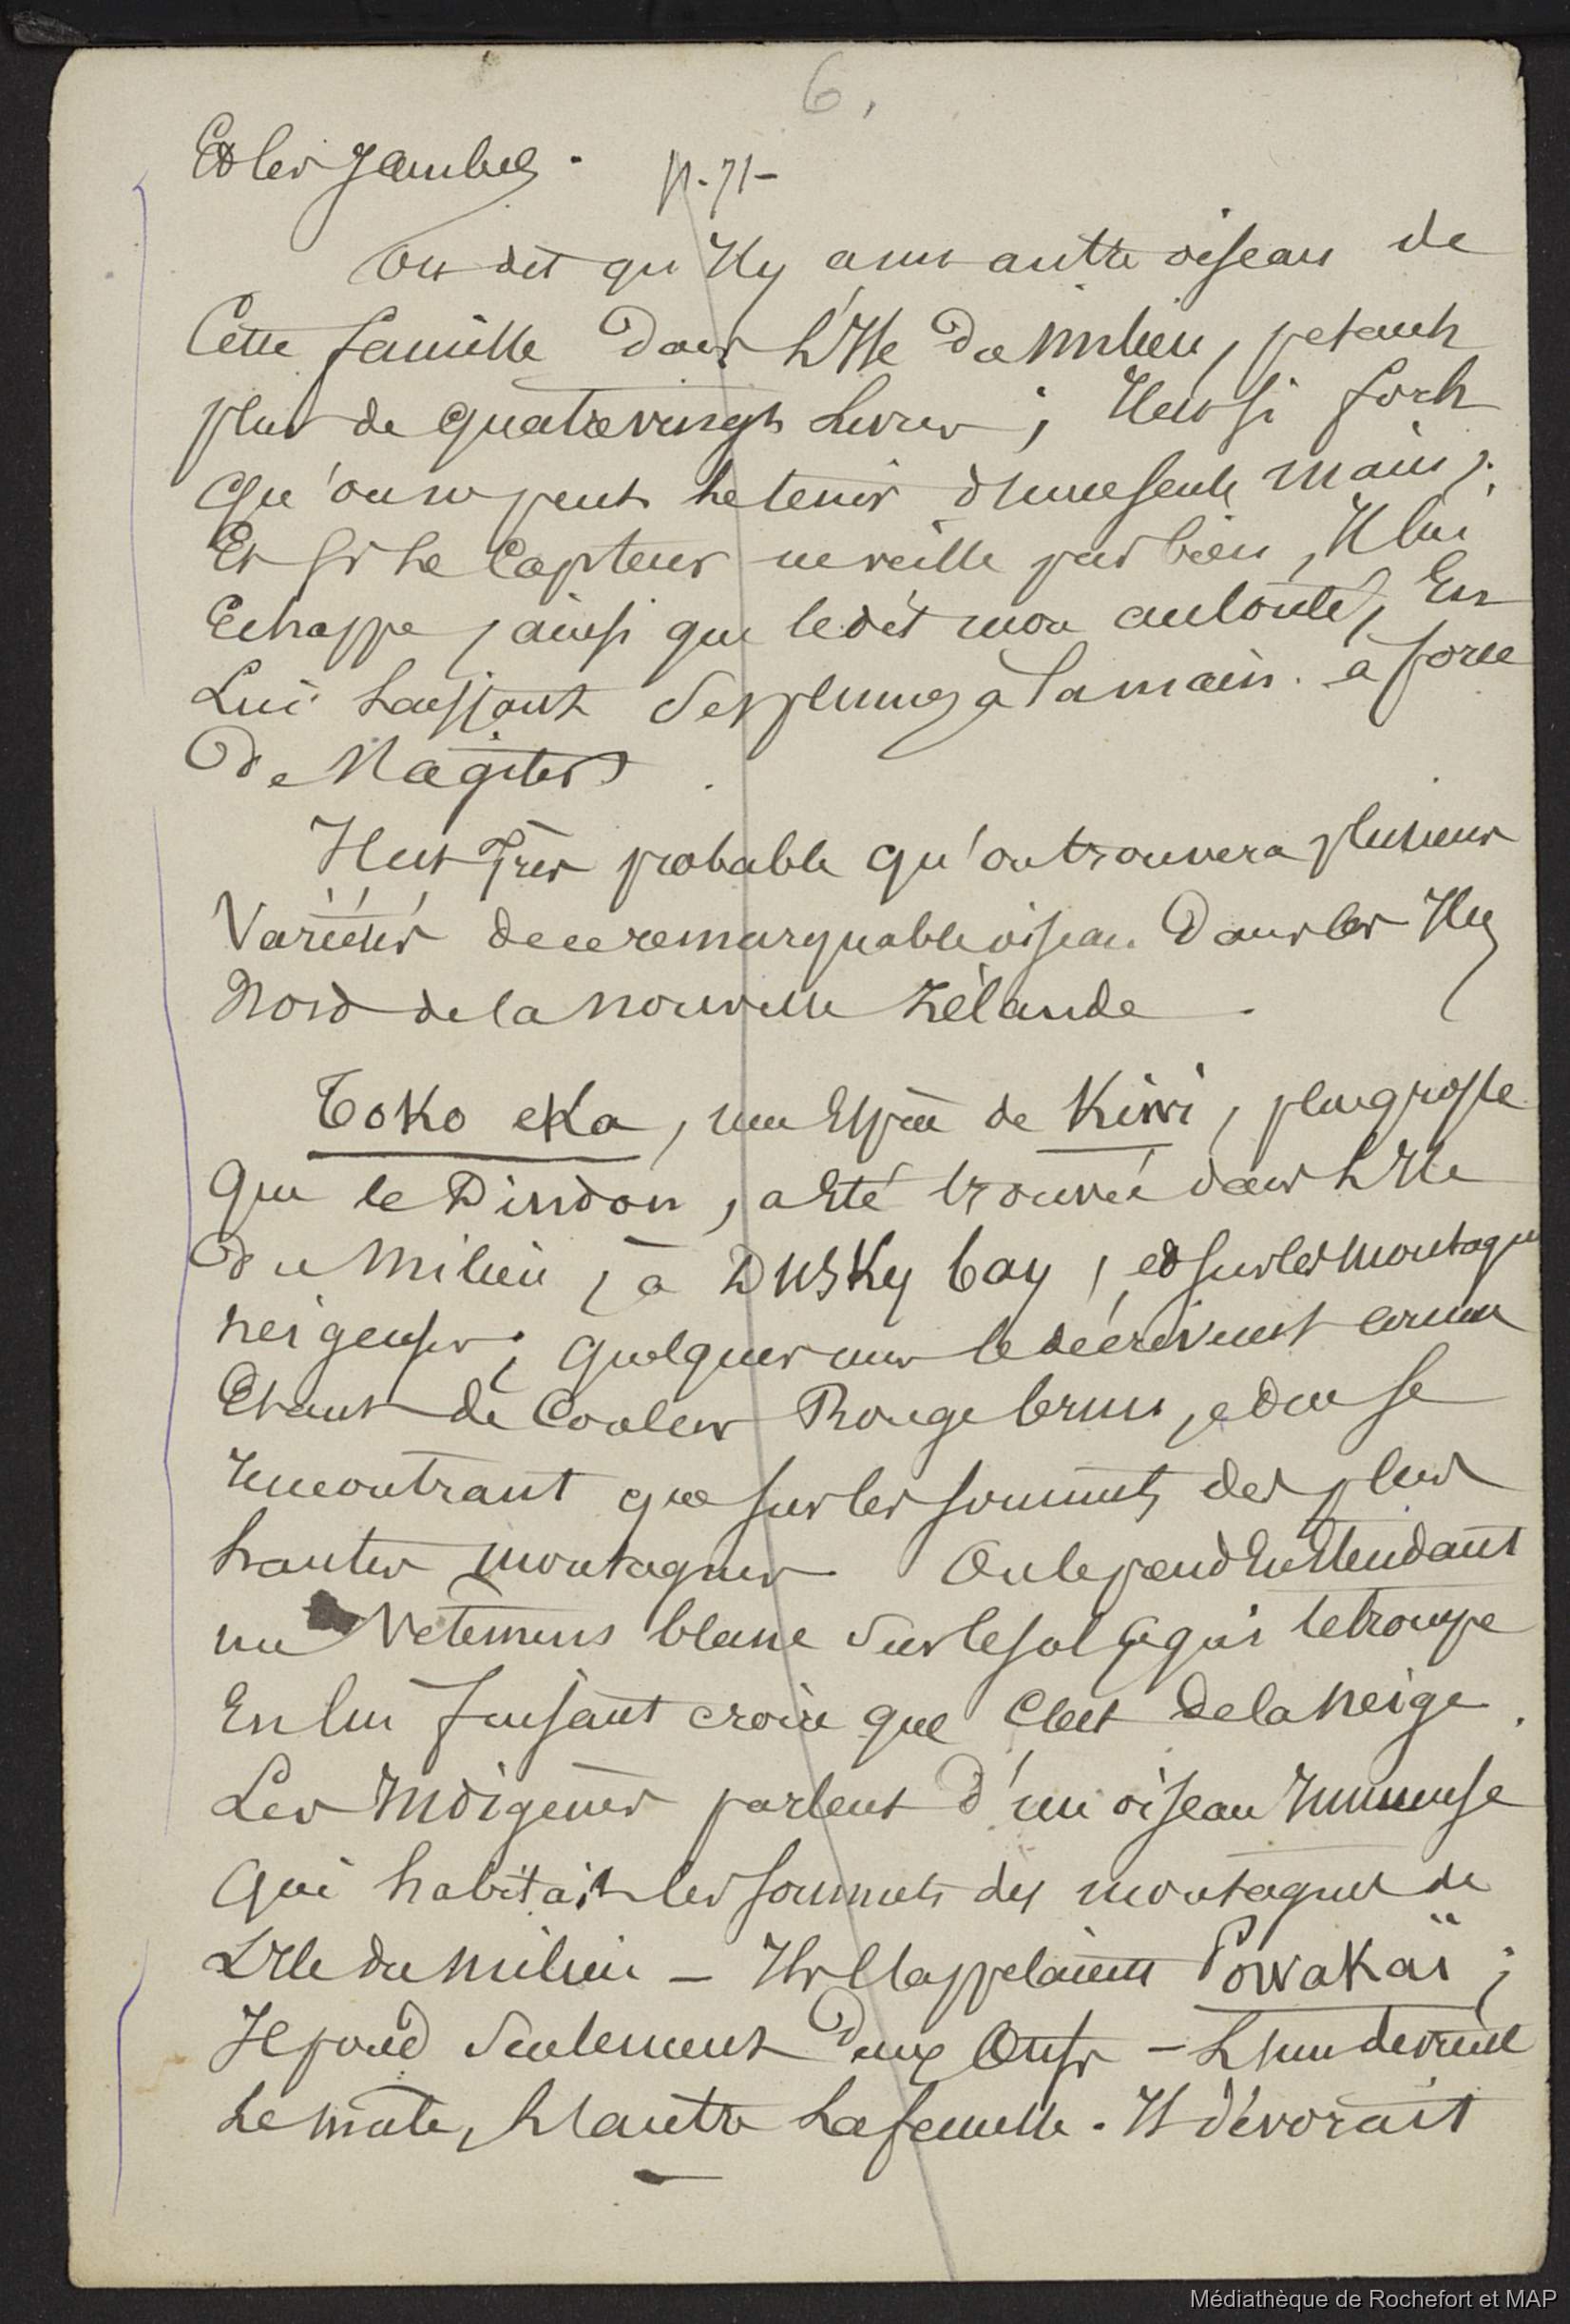 6.
Et les Jambes. p. 71 -
On dit qu'Il y a un autre oiseau de
Cette famille Dans L'Ile Du Milieu, pesant
plus de quatrevingts Livres ; Il est si fort
qu'on ne peut le tenir d'une seule main ;
Et Si le Capteur ne veille pas bien, Il lui
Echappe, ainsi que le dit mon autorité, En
Lui laissant Ses plumes à la main à force
De S'agiter.
Il est Très probable qu'on trouvera plusieurs
Variétés de ce remarquable oiseau Dans les Iles
Nord de la Nouvelle Zélande.
Toko eKa, une Espèce de Kiwi, plus grosse
que le Dindon, a Eté trouvée dans L'Ile
Du Milieu, à Dusky bay, et sur les montagnes
neigeuses ; quelques uns le décrivent comme
Etant de Couleur Rouge brun, et ne se
rencontrant que sur les sommets des plus
hautes montagnes. On le prend En Etendant
un Vetement blanc Sur le sol ce qui le trompe
En lui faisant croire que C'est De la Neige.
Les Indigènes parlent D'un oiseau Immense
qui habitait les sommets des montagnes de
L'Ile du Milieu - Ils l'appelaient Powakaï ;
Il pond Seulement Deux Oeufs - L'un devient
Le mâle, L'autre La femelle. Il dévorait
Médiathèque de Rochefort et MAP